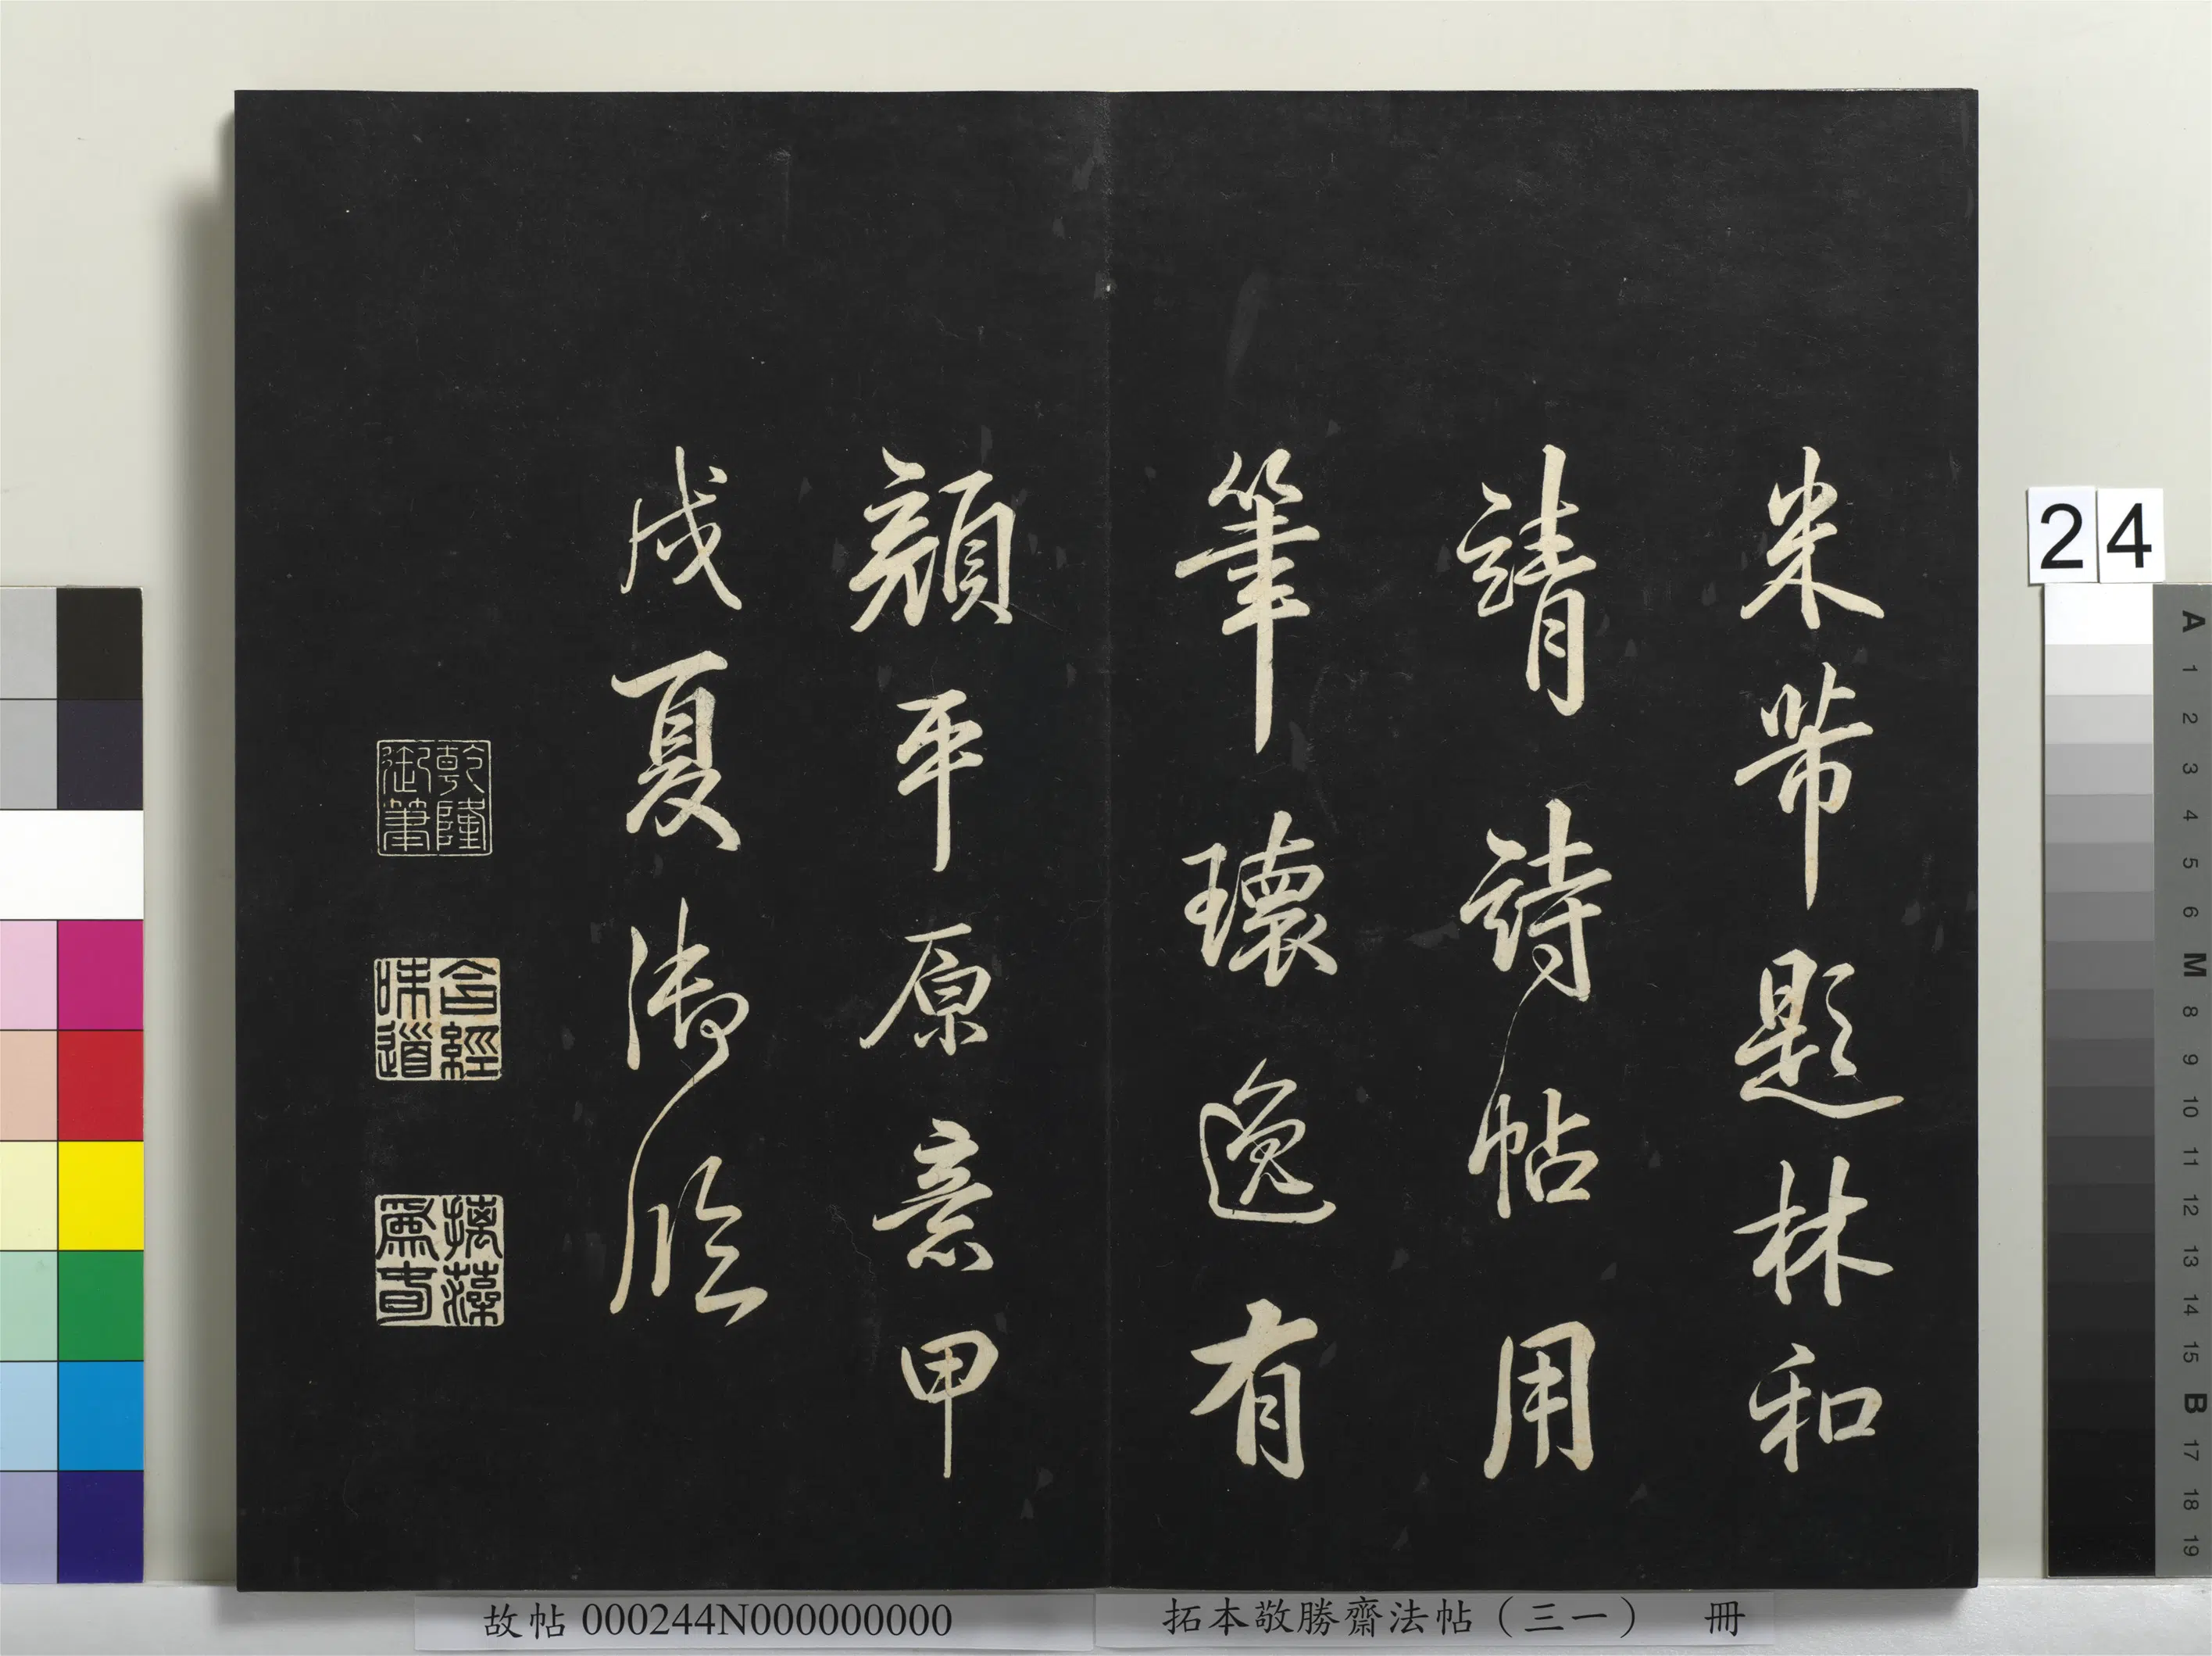 米芾題林和
靖詩帖用
筆瓌逸有
顏平原意甲
戌夏御臨
乾隆
御筆
含經
味道
摛藻
為春
24
故帖 000244N000000000
拓本敬勝齋法帖（三一） 冊
A
1
2
3
4
5
6
M
8
9
10
11
12
13
14
15
B
17
18
19